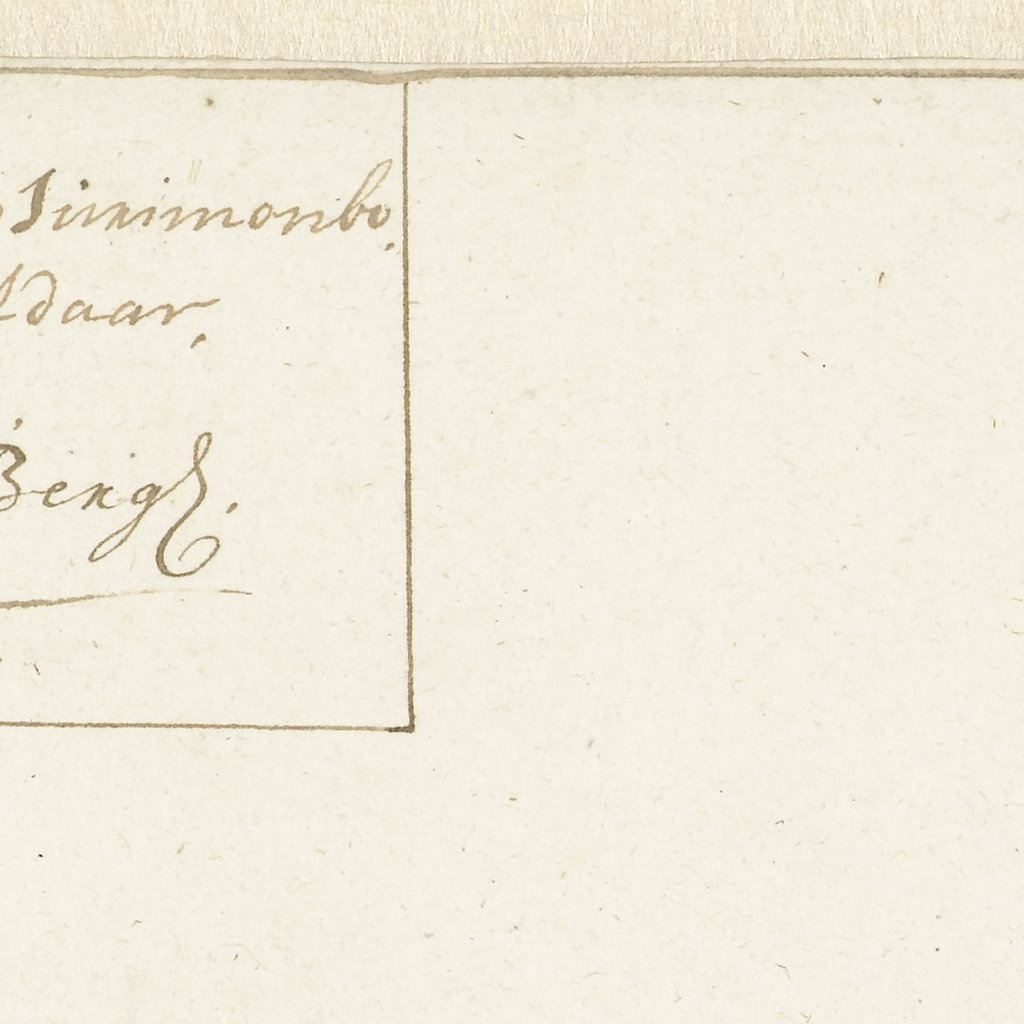 Sirimonbo.
daar.
Bergh.